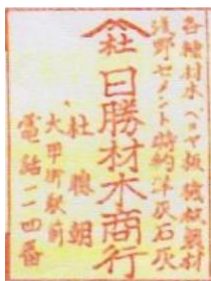 各種材木、ベニヤ板、殘杴製材
淺野セメント特約洋灰石灰
杜
日勝材木商行
杜穗朝
大甲街駅前
電話一一四番